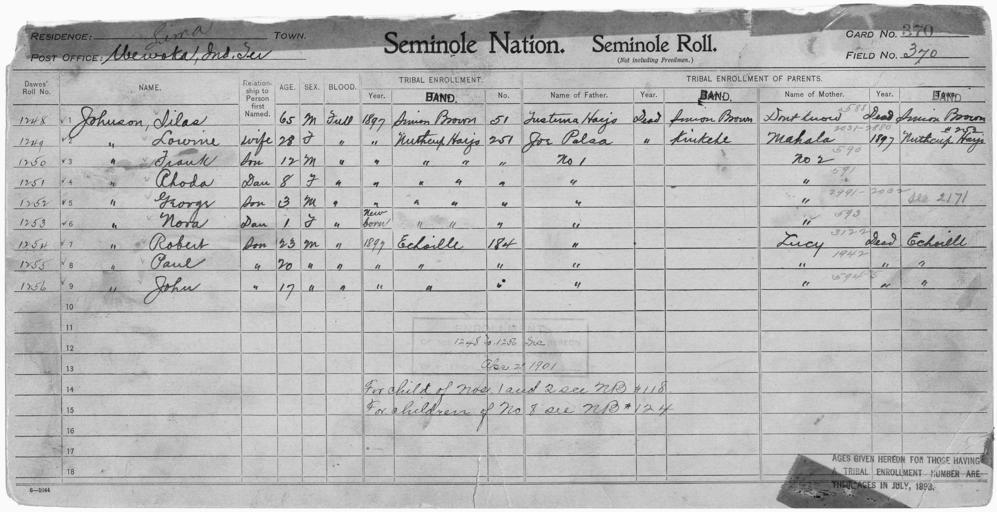 RESIDENCE: Lima TOWN. Seminole Nation. Seminole Roll. CARD NO. 370
POST OFFICE: Wewoka, Ind. Ter (Not including Freedmen.) FIELD NO. 370
Dawes' Roll No. NAME. Relationship to Person first Named. AGE. SEX. BLOOD. TRIBAL ENROLLMENT. Year. BAND. No. TRIBAL ENROLLMENT OF PARENTS. Name of Father. Year. BAND. Name of Mother. Year. BAND.
2588
1248 1 Johnson, Silas 65 M Full 1897 Simon Brown 51 Fustema Harjo Dead Simon Brown Dont know Dead Simon Brown
# 252
1249 2 " Lowine wife 28 F " " Nuthcup Harjo 251 Joe Palsa " Kinkehe Mahala 1897 Nuthcup Harjo
590
1250 3 " Frank Son 12 M " " " " " No 1 No 2
591
1251 4 " Rhoda Dau 8 F " " " " " "
1252 5 " George Son 3 M " " " " " " see 2171
593
1253 6 " Nora Dau 1 F " New born " " " "
3122
1254 7 " Robert Son 23 M " 1897 Echoille 184 " " Lucy Dead Echoille
1942
1255 8 " Paul " 20 " " " " " " " " "
1256 9 " John " 17 " " " " " " " " "
10
11
12 1248 to 1256 Inc
13 Apr 2 1901
14 For child of Nos. 1 and 2 see NB #118
15 For children of No 8 see NB #124
16
17
18
AGES GIVEN HEREON FOR THOSE HAVING
A TRIBAL ENROLLMENT NUMBER ARE
THEIR AGES IN JULY, 1898.